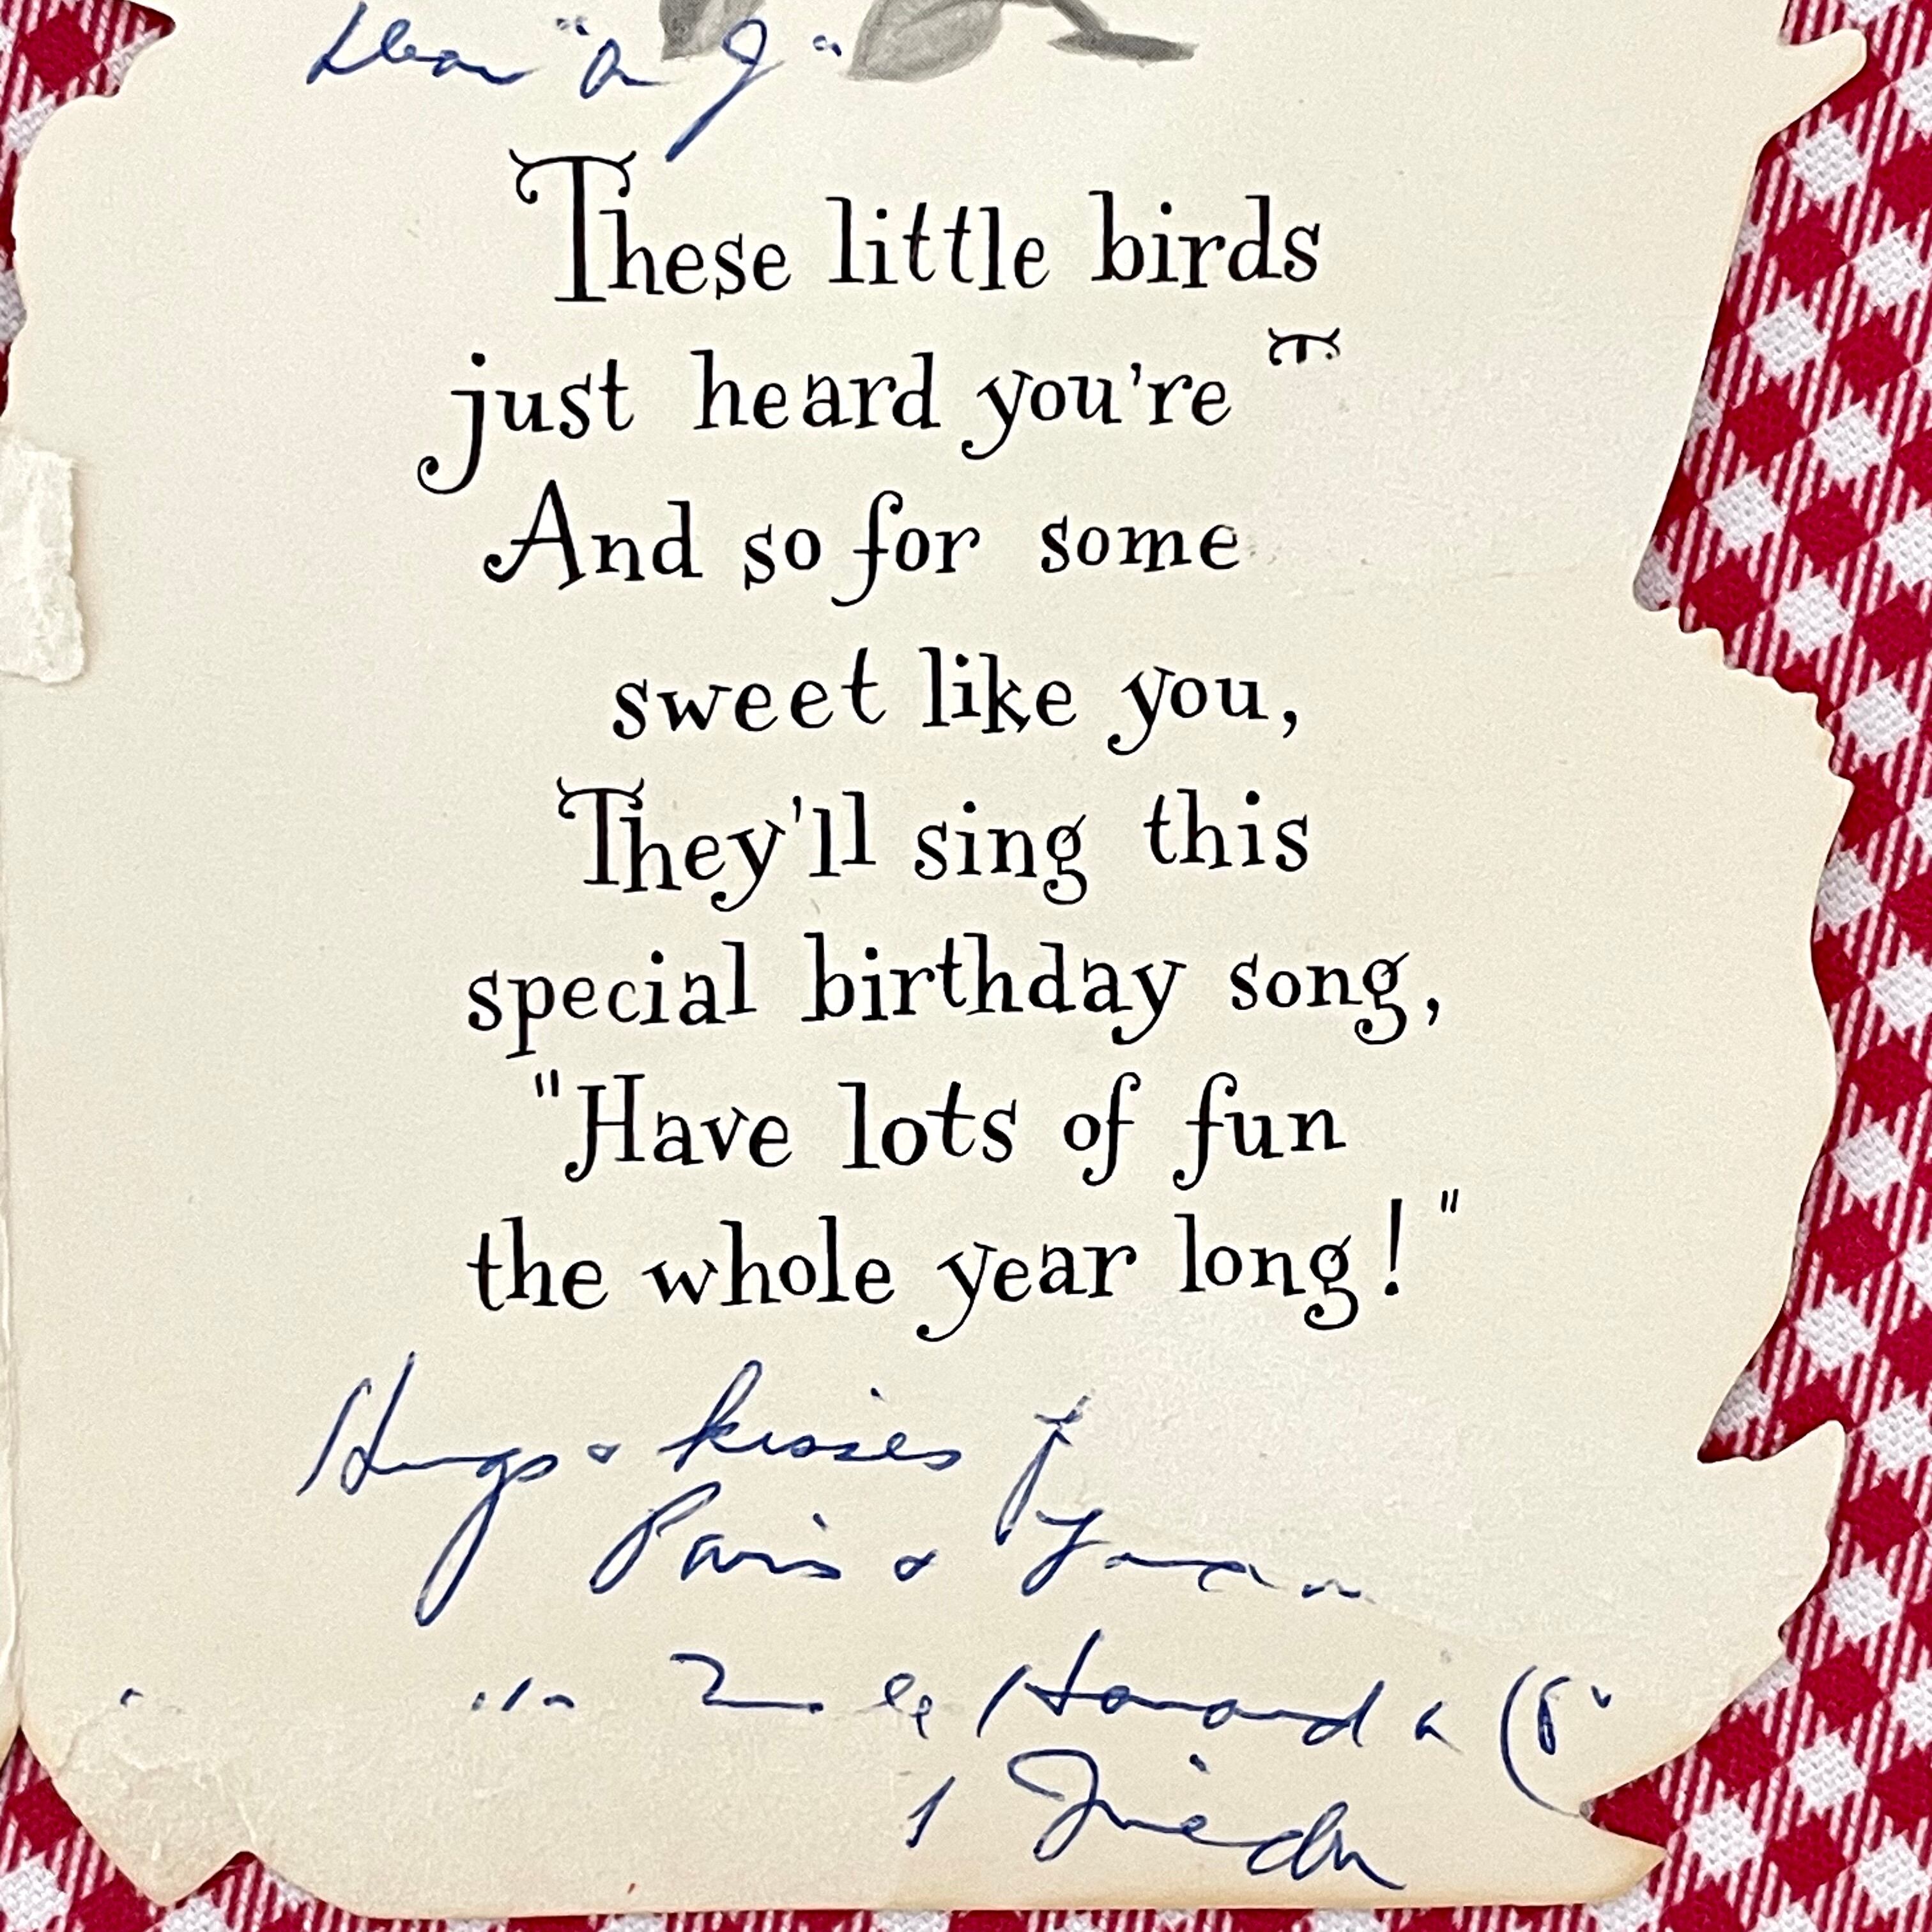 Dear
These little birds
just heard you're
And so for some
sweet like you,
They'll sing this
special birthday song,
"Have lots of fun
the whole year long!"
Hugs & kisses
Paris &
Howard &